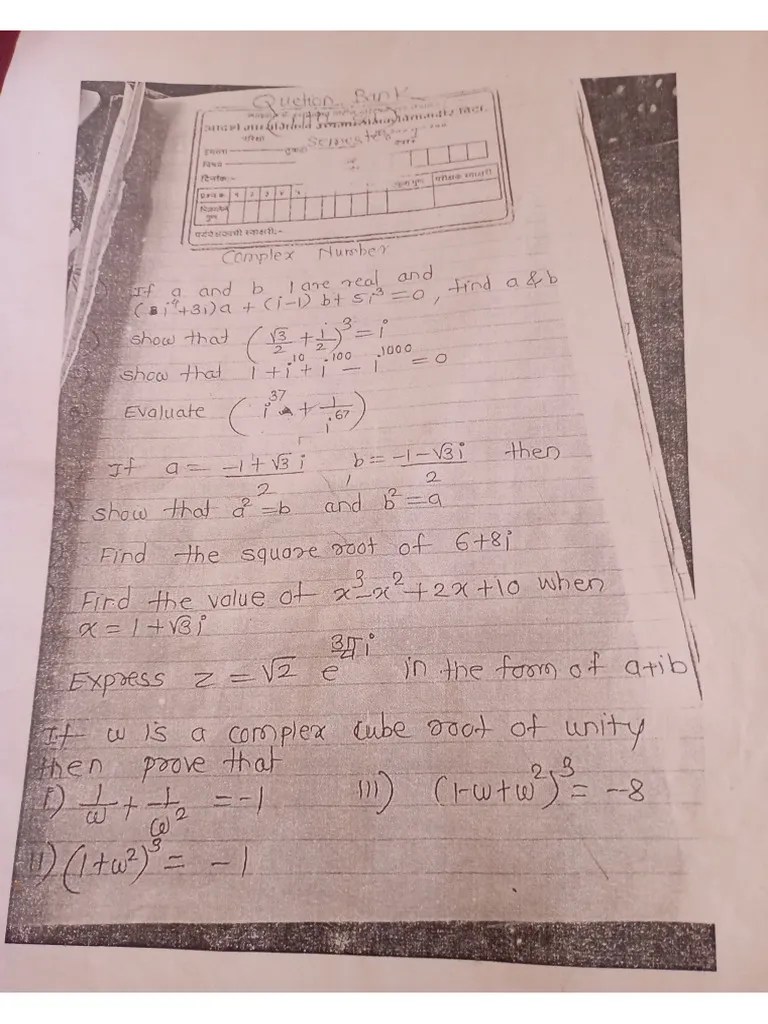 Quetion Bank
Semester
परिक्षा
इयत्ता तुकडी
विषय
दिनांक:-
प्रश्न क्र. १ २ ३ ४ ५
परीक्षक स्वाक्षरी
गुण
पर्यवेक्षकाची स्वाक्षरी:-
Complex Number
If a and b are real and
(i⁴+3i)a + (i-1) b + 5i³ = 0, find a & b
show that (√3/2 + i/2)³ = i
show that 1 + i¹⁰ + i¹⁰⁰ - i¹⁰⁰⁰ = 0
Evaluate (i³⁷ + 1/i⁶⁷)
If a = (-1+√3i)/2 , b = (-1-√3i)/2 then
show that a² = b and b² = a
Find the square root of 6+8i
Find the value of x³-x²+2x+10 when
x = 1+√3i
Express z = √2 e^(3π/4 i) in the form of a+ib
If ω is a complex cube root of unity
then prove that
i) 1/ω + 1/ω² = -1 iii) (1-ω+ω²)³ = -8
ii) (1+ω²)³ = -1